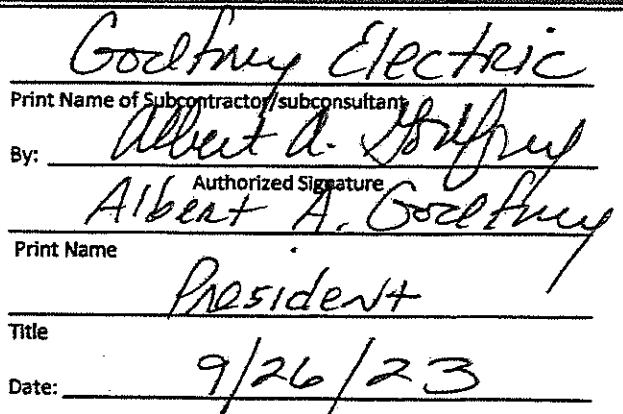 Godfrey Electric
Print Name of Subcontractor/subconsultant
By: Albert A. Godfrey
Authorized Signature
Albert A. Godfrey
Print Name
President
Title
Date: 9/26/23